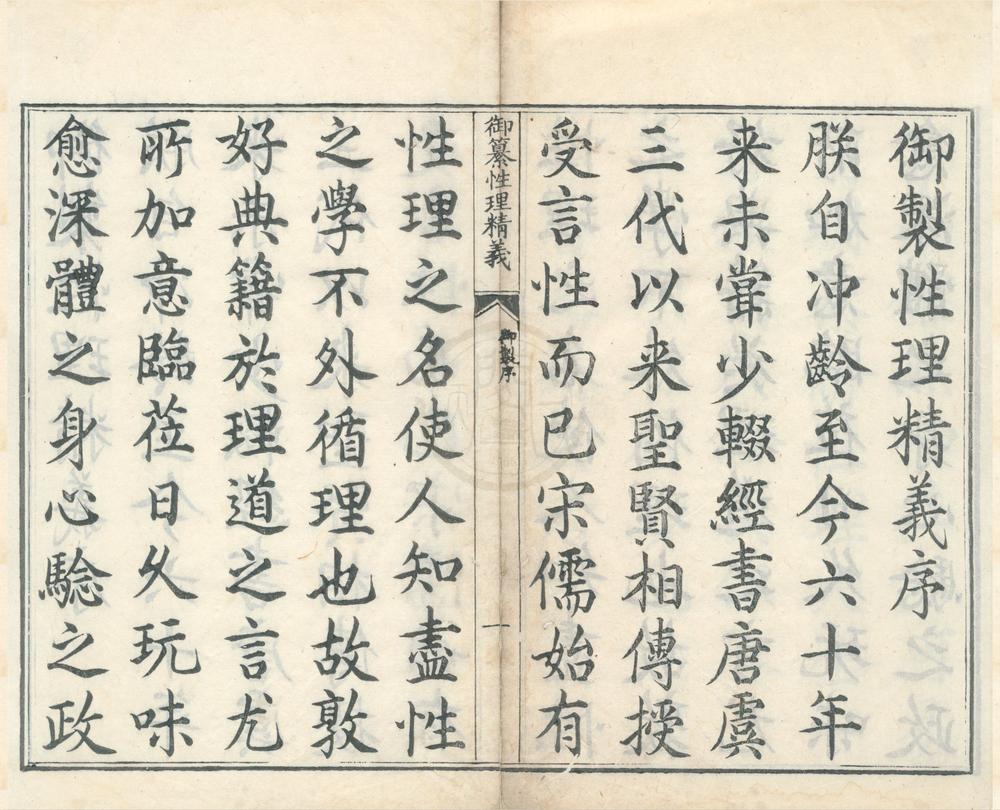 御製性理精義序
朕自冲齡至今六十年
来未甞少輟經書唐虞
三代以来聖賢相傳授
受言性而已宋儒始有
御纂性理精義
御製序
一
性理之名使人知盡性
之學不外循理也故敦
好典籍於理道之言尤
所加意臨莅日久玩味
愈深體之身心驗之政